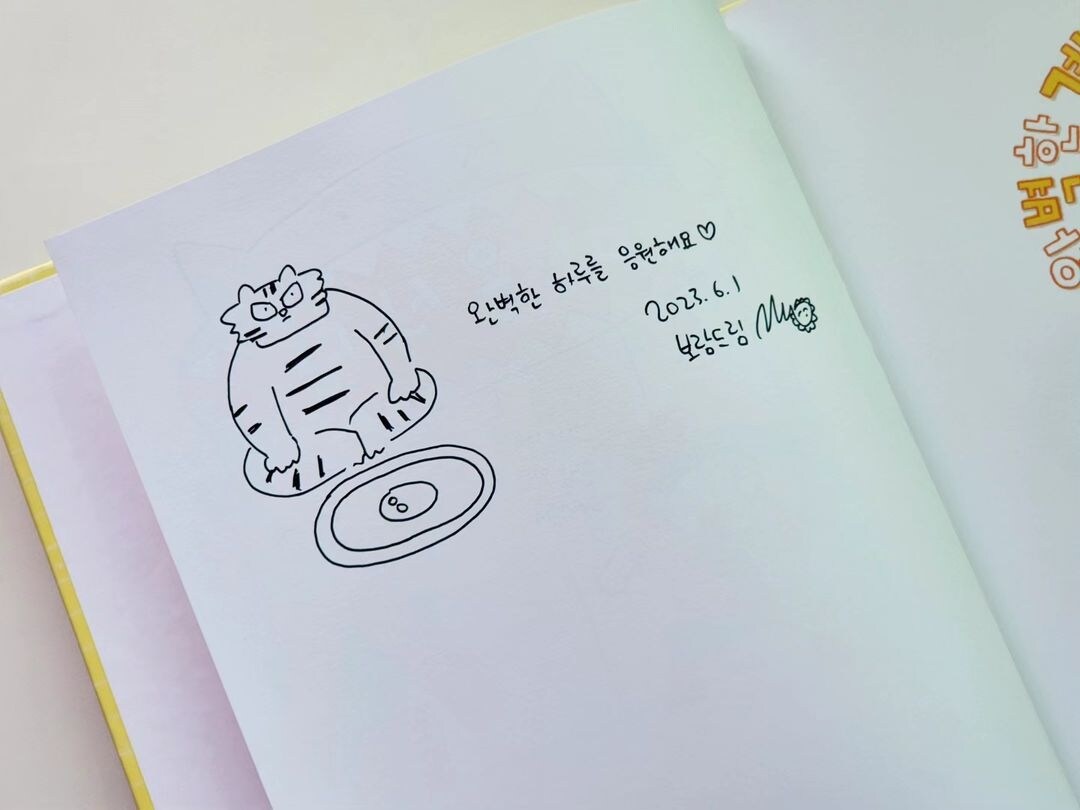 완벽한 하루를 응원해요♡
2023.6.1
보람드림
완벽한 계